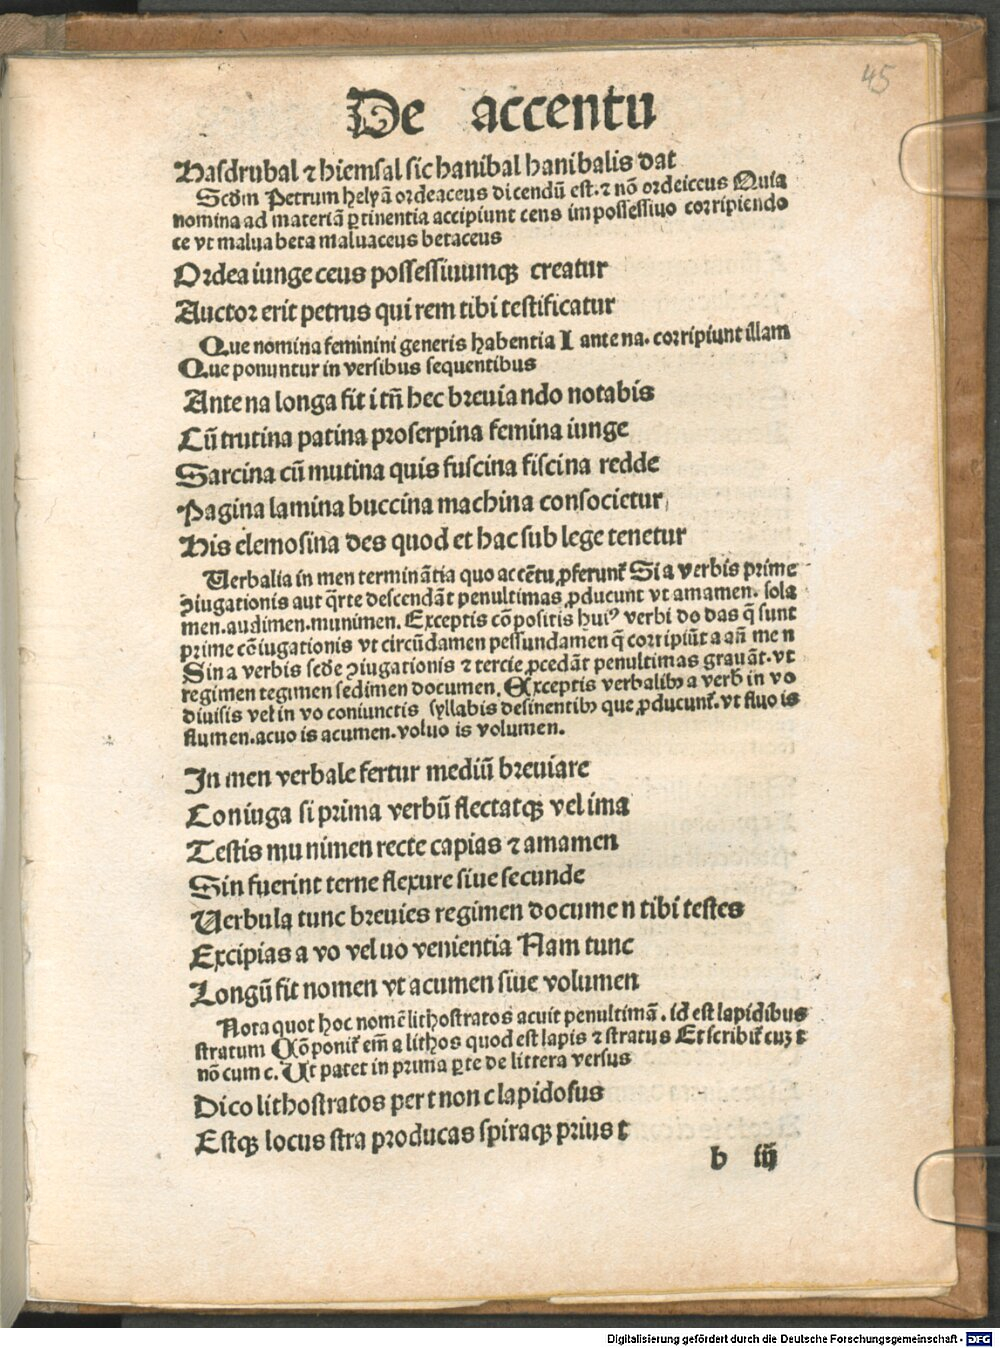 45
De accentu
Hasdrubal ⁊ hiemsal sic hanibal hanibalis dat
Scđm Petrum helyā ordeaceus dicendū est. ⁊ nō ordeiceus Quia
nomina ad materiā ꝑtinentia accipiunt ceus in possessiuo corripiendo
ce vt malua beta maluaceus betaceus
Ordea iunge ceus possessiuumqꝫ creatur
Auctor erit petrus qui rem tibi testificatur
Que nomina feminini generis habentia I ante na. corripiunt illam
Que ponuntur in versibus sequentibus
Ante na longa fit i tn̄ hec breuiando notabis
Cū trutina patina proserpina femina iunge
Sarcina cū mutina quis fuscina fiscina redde
Pagina lamina buccina machina consocietur
His elemosina des quod et hac sub lege tenetur
Uerbalia in men terminātia quo accētu ꝓferunt̄ Si a verbis prime
ꝯiugationis aut q̄rte descendāt penultimas ꝓducunt vt amamen. sola
men. audimen. munimen. Exceptis cōpositis huiꝰ verbi do das q̄ sunt
prime cōiugationis vt circūdamen pessundamen q̄ corripiūt a an̄ men
Sin a verbis scđe ꝯiugationis ⁊ tercie ꝓcedāt penultimas grauāt. vt
regimen tegimen sedimen documen. Exceptis verbalibꝰ a verb̄ in vo
diuisis vel in vo coniunctis syllabis desinentibꝰ que ꝓducunt̄. vt fluo is
flumen. acuo is acumen. voluo is volumen.
In men verbale fertur mediū breuiare
Coniuga si prima verbū flectatqꝫ vel ima
Testis munimen recte capias ⁊ amamen
Sin fuerint terne flexure siue secunde
Uerbula tunc breuies regimen documen tibi testes
Excipias a vo vel uo venientia Nam tunc
Longū fit nomen vt acumen siue volumen
Nota quot hoc nomē lithostratos acuit penultimā. id est lapidibus
stratum Cōponit̄ em̄ a lithos quod est lapis ⁊ stratus Et scribit̄ cuꝫ t
nō cum c. Ut patet in prima ꝑte de littera versus
Dico lithostratos per t non c lapidosus
Estqꝫ locus stra producas spiraqꝫ prius t
b iij
Digitalisierung gefördert durch die Deutsche Forschungsgemeinschaft - DFG